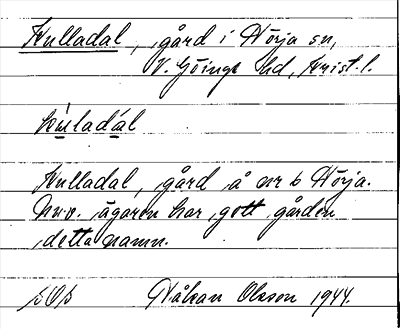 Kulladal, gård i Nörja sn,
V. Göinge hd, Krist. l.
Kulladal, gård å nr 6 Nörja.
Nuv. ägaren har gett gården
detta namn.
Håkan Olsson 1944.